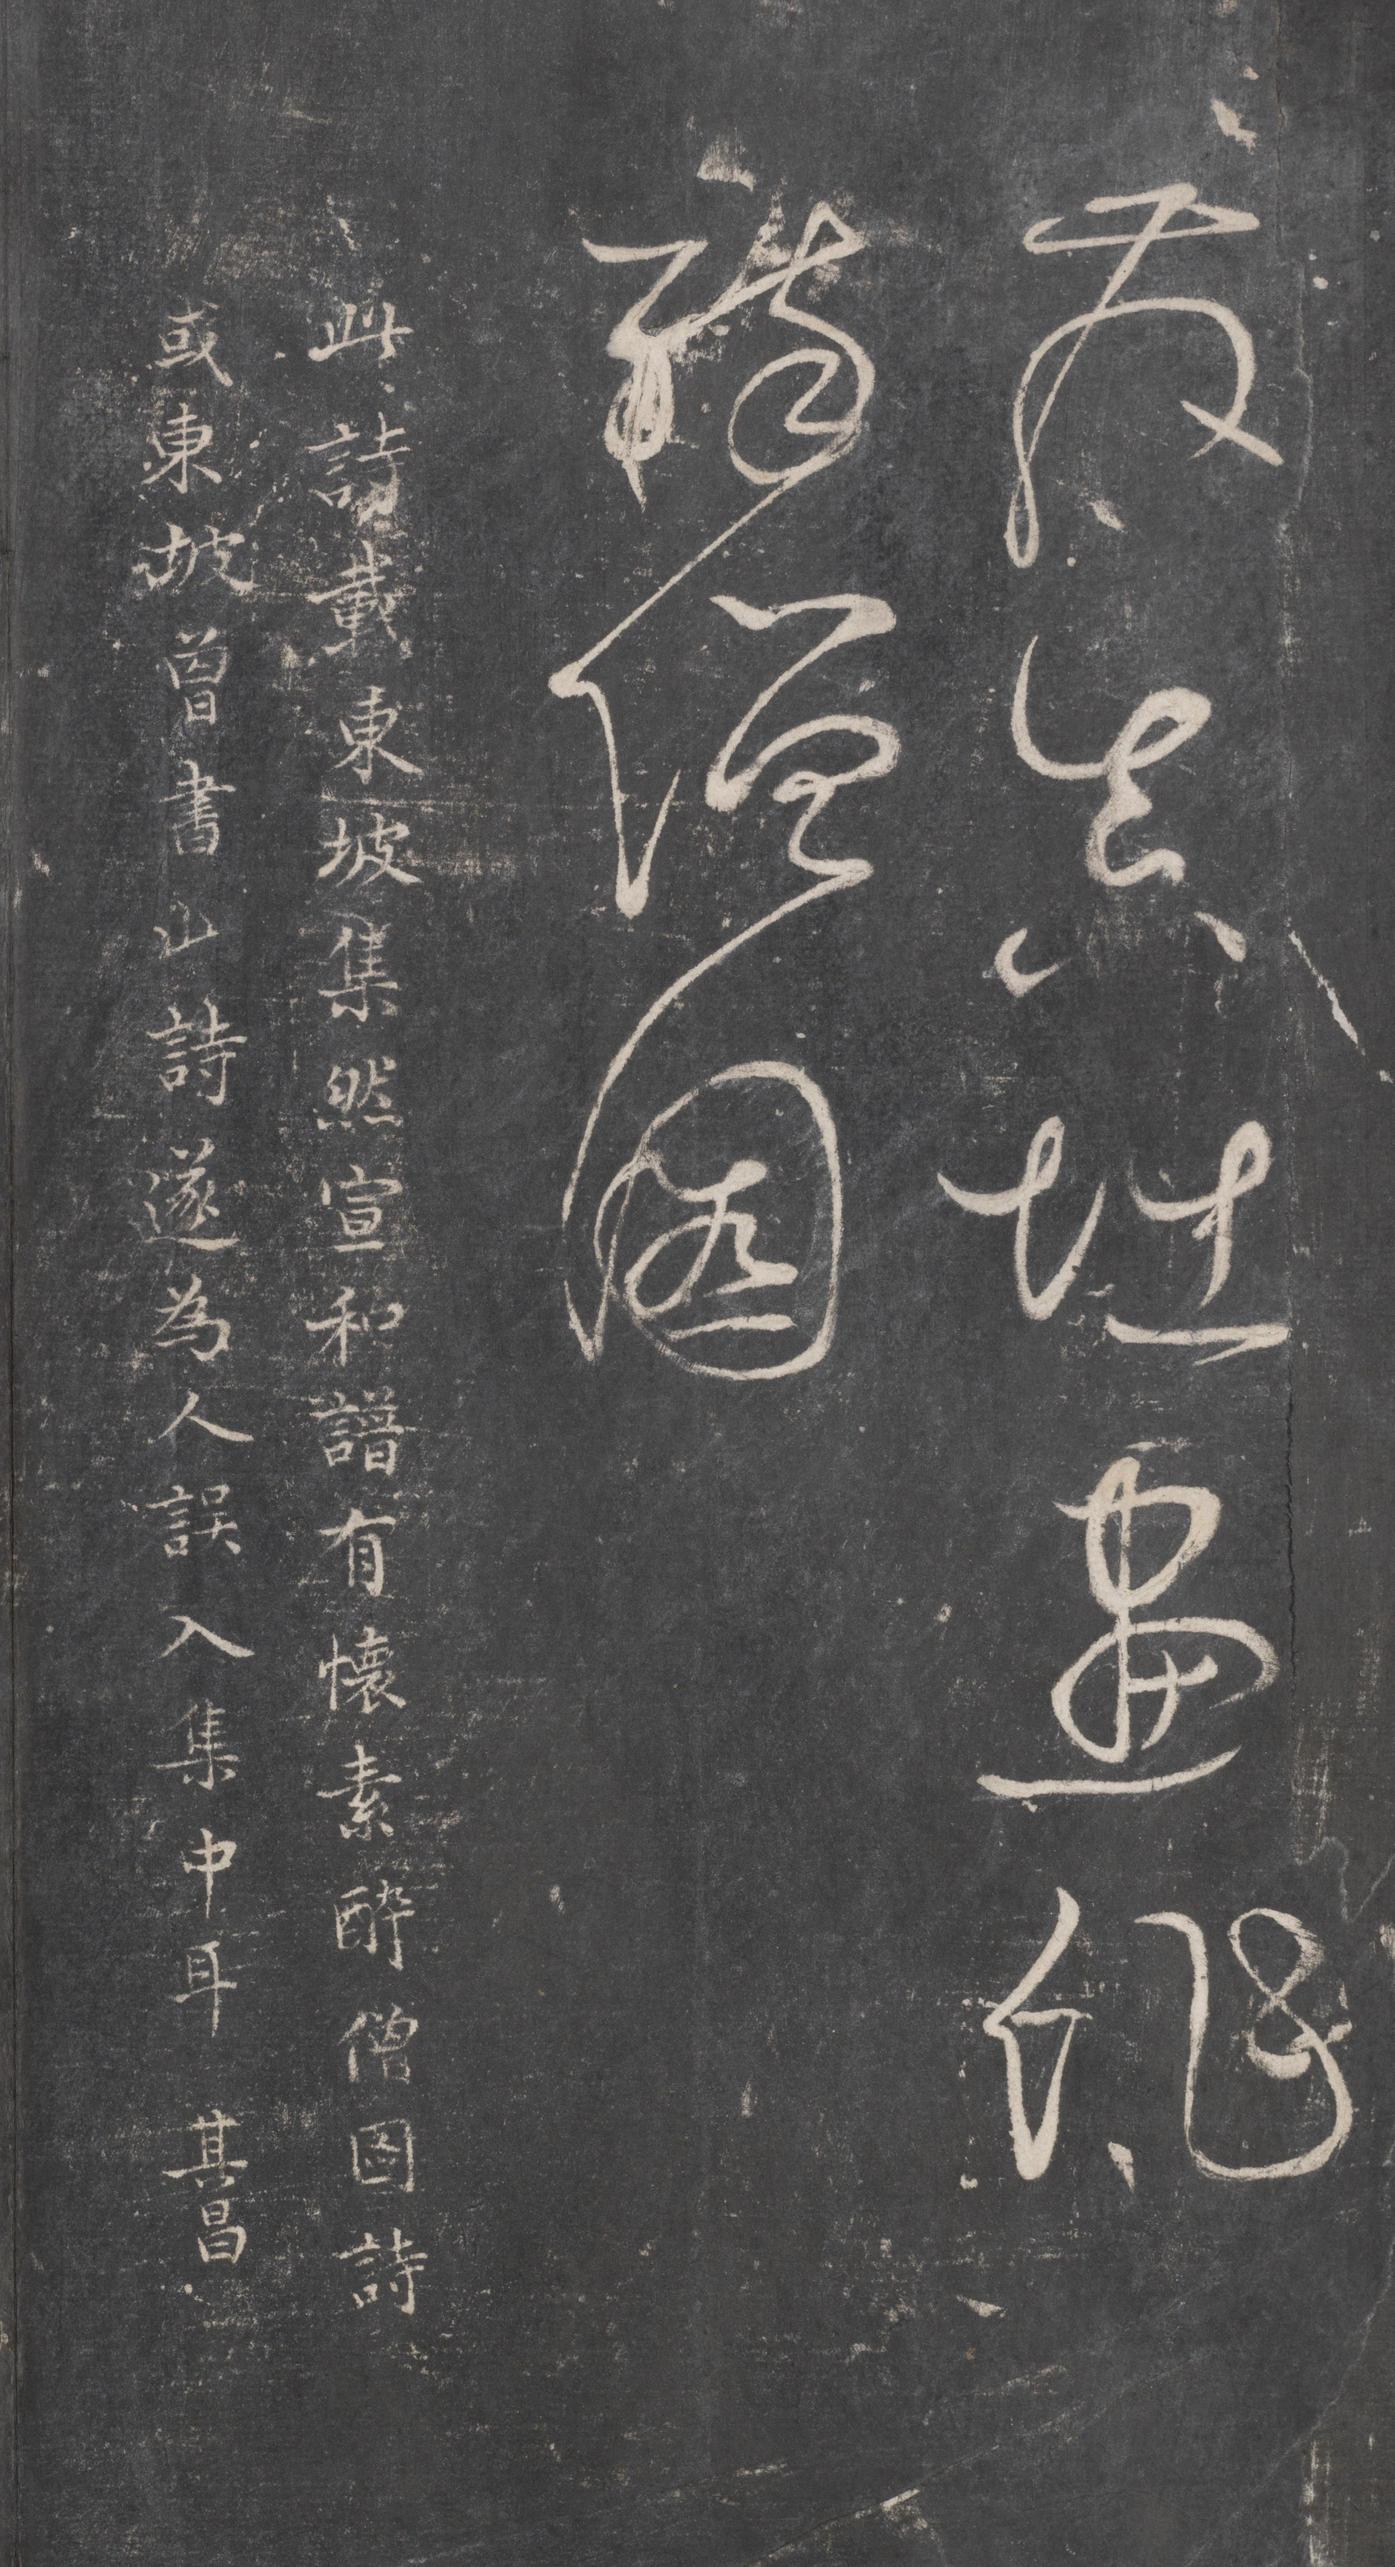 应是真性畫絹
醉僧圖
此詩載東坡集然宣和譜有懷素醉僧圖詩
或東坡曾書此詩遂為人誤入集中耳 其昌